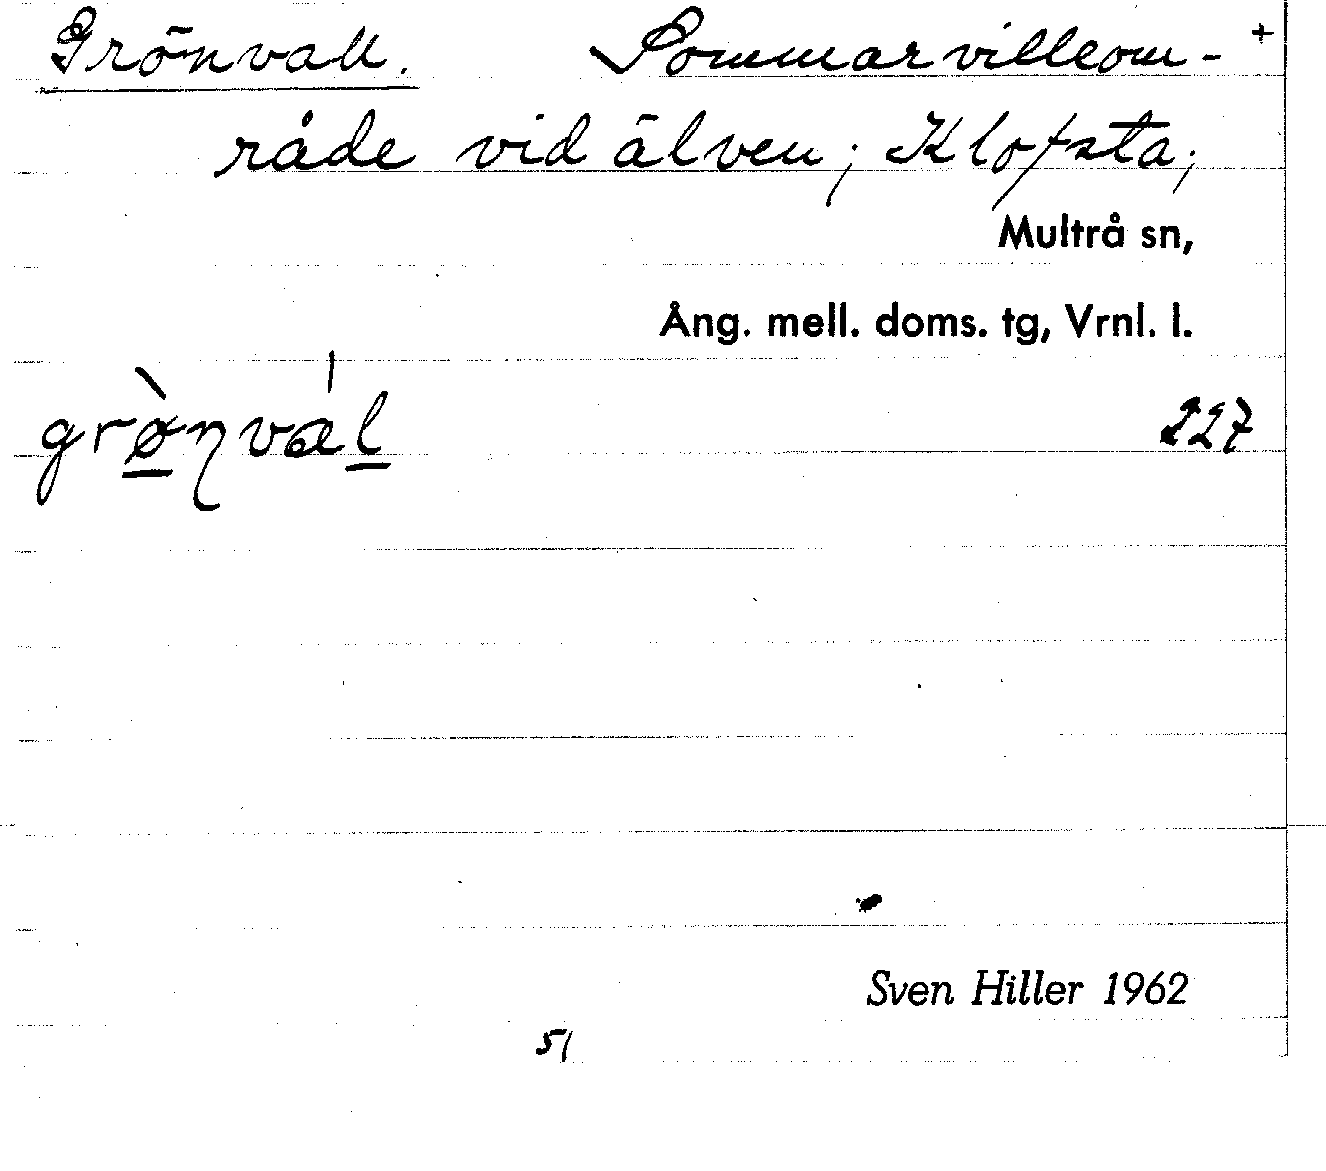 Grönvall. Sommarvilleom- +
råde vid älven; Klofsta;
Multrå sn,
Ång. mell. doms. tg, Vrnl. l.
grø̀nvál 227
Sven Hiller 1962
51